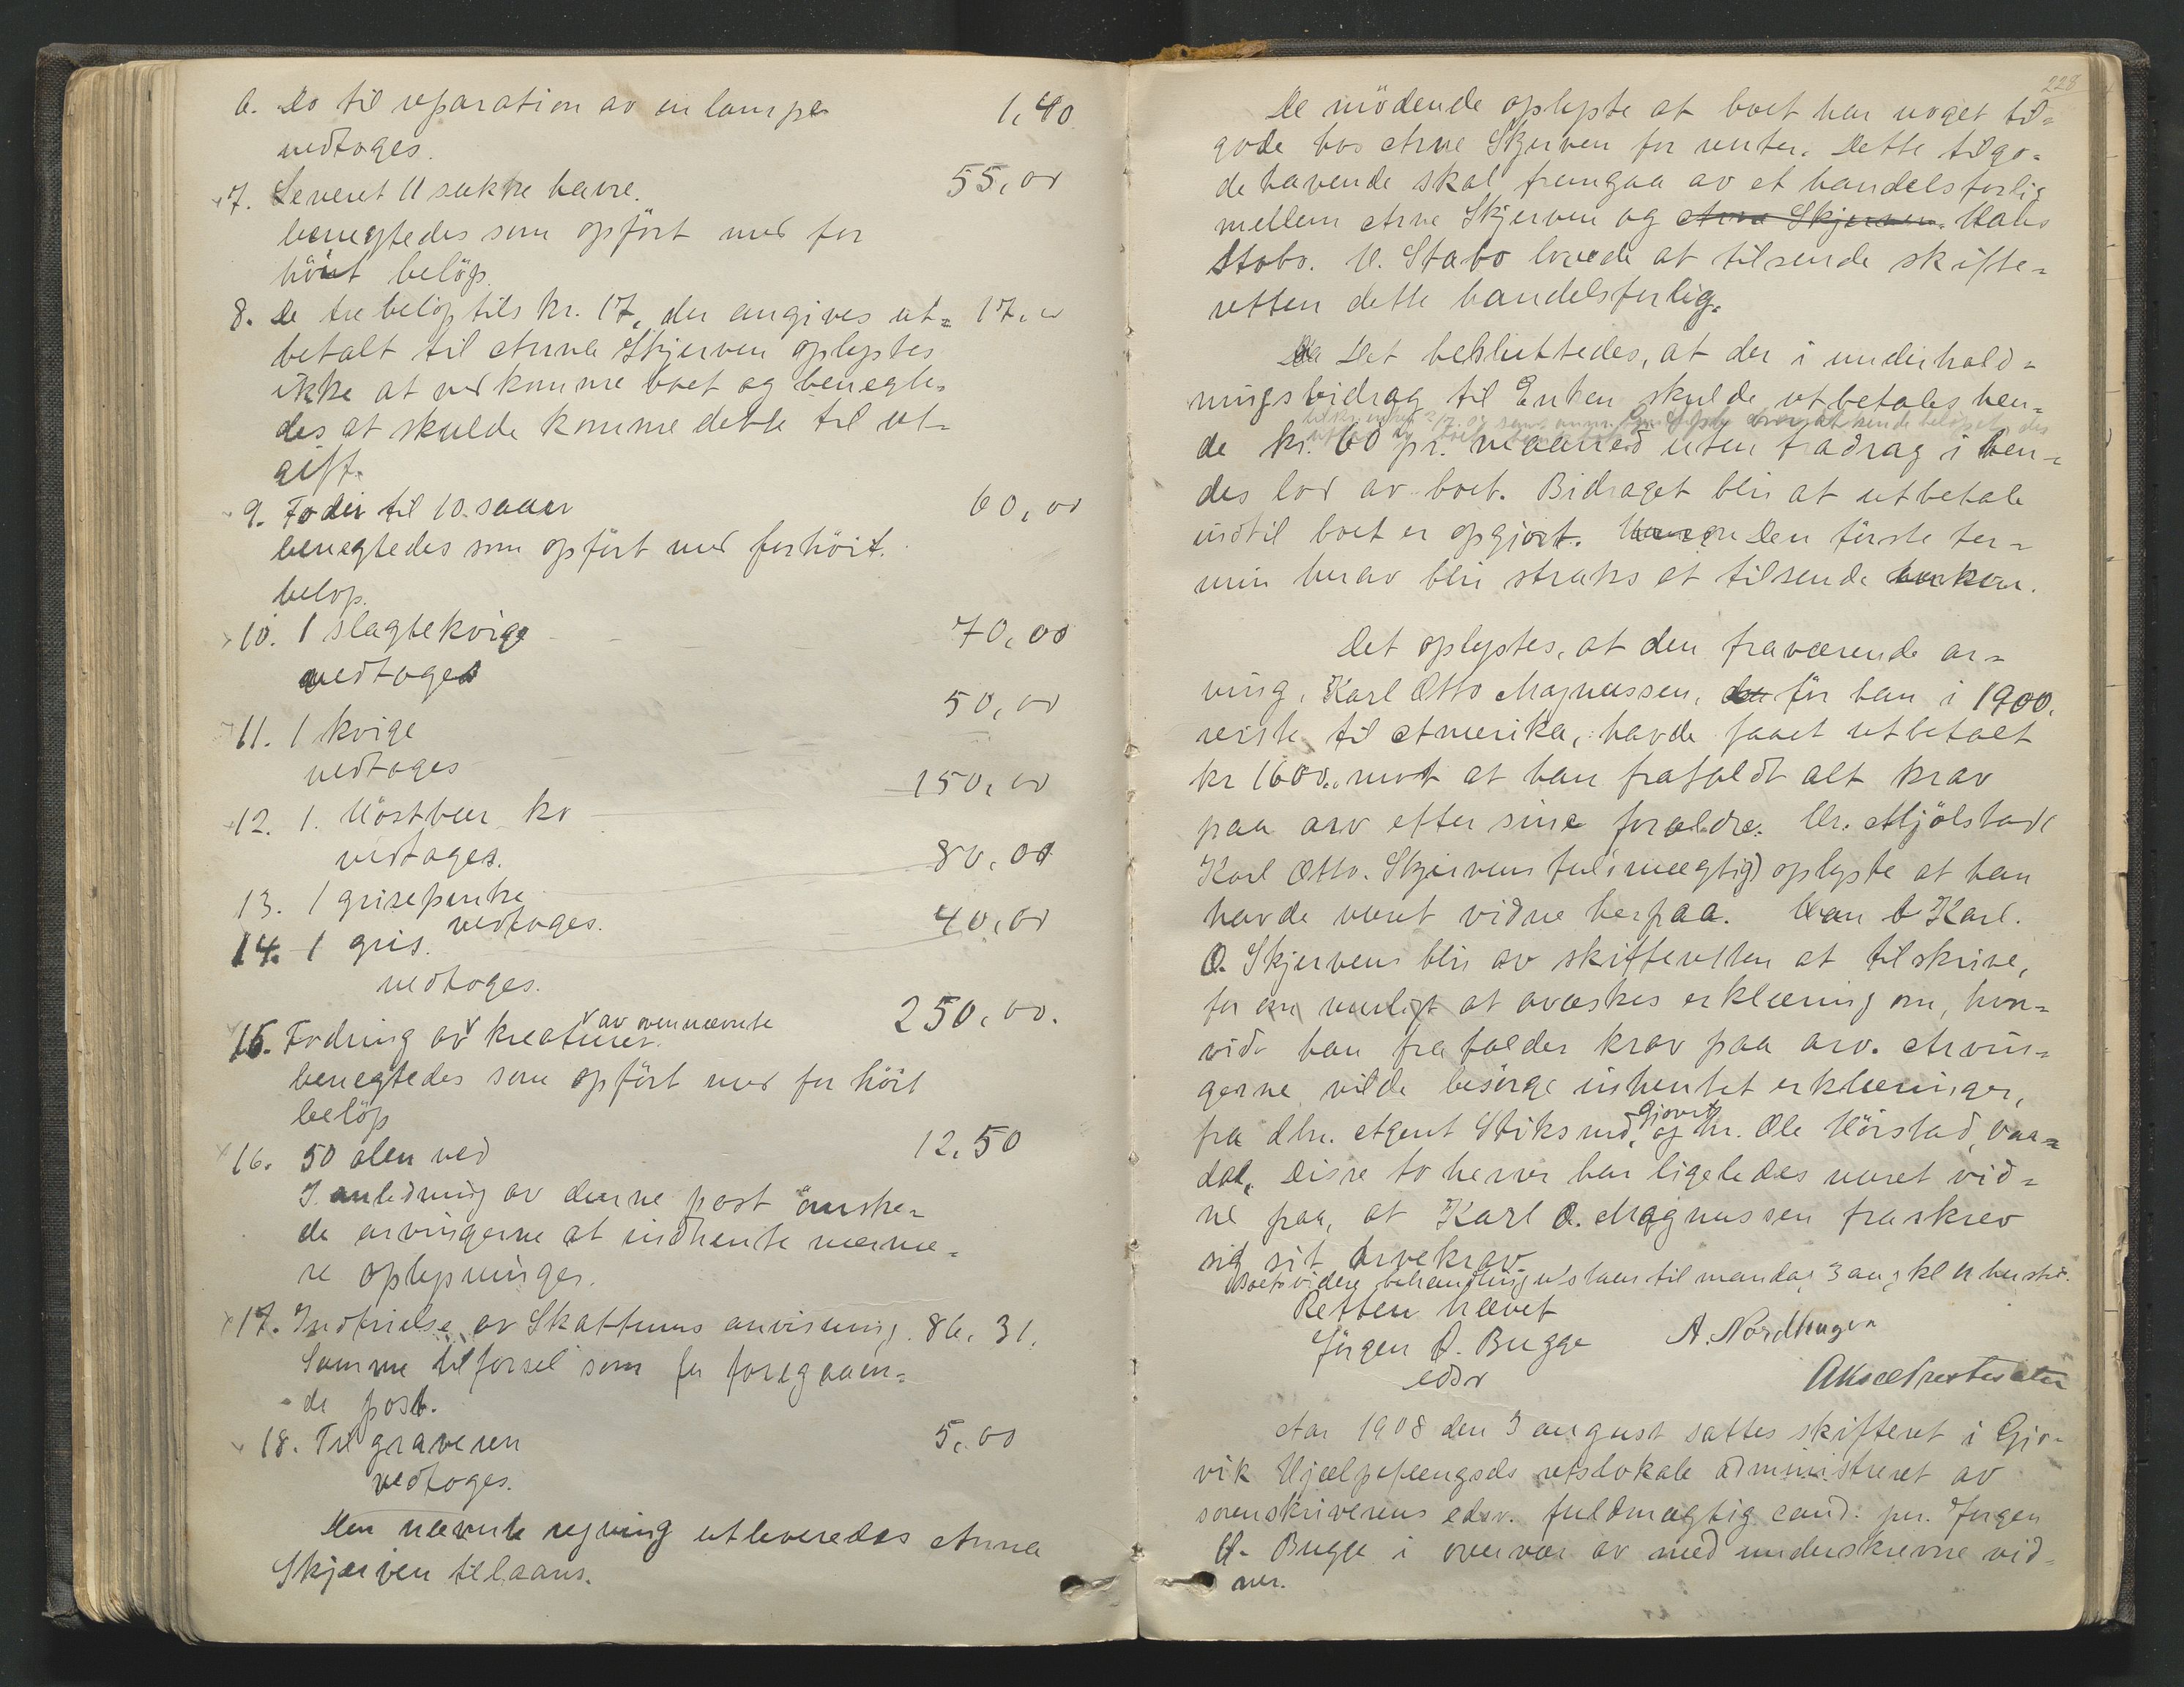 6. Do til reparation av en lampe 1,40
vedtoges.
7. Leveret 11 sække havre. 55,00
benegtedes som opfört med for
höit belöp.
8. De tre belöp tils kr. 17, der angives ut= 17,00
betalt til Anna Skjerven oplystes
ikke at vedkomme boet og benegte=
des at skulde komme dette til ut=
gift.
9. Foder til 10 sauer 60,00
benegtedes som opfört med forhöit.
belöp.
10. 1 slagtekvige 70,00
vedtoges
11. 1 kvige 50,00
vedtoges
12. 1. Höstbær ko 150,00
vedtages.
13. 1 grisepurke 80,00
vedtoges.
14. 1 gris. 40,00
vedtoges.
15. Fodring av kreaturer. av ovennævnte 250,00.
benegtedes som opfört med for höit
belöp
16. 50 alen ved 12,50
I anledning av denne post önske=
de arvingerne at indhente nærme=
re oplysninger.
17. Indfrielse av Skattums anvisning. 86,31.
Samme tilförsel som for foregaaen=
de post.
18. Til graveren 5,00
vedtoges.
Den nævnte regning utleveredes Anna
Skjerven tillaans.
228
De mödende oplyste at boet har noget til=
gode hos Arne Skjerven for renter. Dette tilgo=
dehavende skal fremgaa av et handelsforlig
mellem Arne Skjerven og Arne Skjerven. Hans
Stabo. H. Stabo lovede at tilsende skifte=
retten dette handelsforlig.
Det besluttedes, at der i underhold=
ningsbidrag til Enken skulde utbetales hen=
de kr. 60 pr. maaned uten fradrag i hen=
des lod av boet. Bidraget blir at utbetale
indtil boet er opgjort. Den förste ter=
min herav blir straks at tilsende enken.
Det oplystes, at den fraværende ar=
ving, Karl Otto Magnussen, för han i 1900.
reiste til Amerika, havde faaet utbetalt
kr 1600.. mot at han frafaldt alt krav
paa arv efter sine forældre. Hr. Mjölstad
Karl Otto. Skjervens fuldmægtig) oplyste at han
havde været vidne herpaa. Karl.
O. Skjerven blir av skifteretten at tilskrive,
for om muligt at avæskes erklæring om, hvor=
vidt han frafalder krav paa arv. Arvin=
gerne vilde besörge indhentet erklæringer,
fra dhr. Agent Stiksrud, Gjövik og Hr. Ole Hörstad, Vaa=
dal. Disse to herrer har ligeledes været vid=
ne paa, at Karl O. Magnussen fraskrev
sig sit arvekrav
Boets videre behandling utstaar til mandag 3 aug kl 11 hersted.
Retten hævet
Jörgen H. Bugge A. Nordhagen
edsv
Aar 1908 den 3 august sattes skifteret i Gjö=
vik Hjælpefængsels retslokale administreret av
sorenskriverens edsv. fuldmægtig cand. jur. Jörgen
H. Bugge i overvær av medunderskrevne vid=
ner.